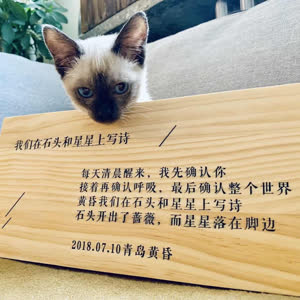 我们在石头和星星上写诗
每天清晨醒来，我先确认你
接着再确认呼吸，最后确认整个世界
黄昏我们在石头和星星上写诗
石头开出了蔷薇，而星星落在脚边
2018.07.10青岛黄昏